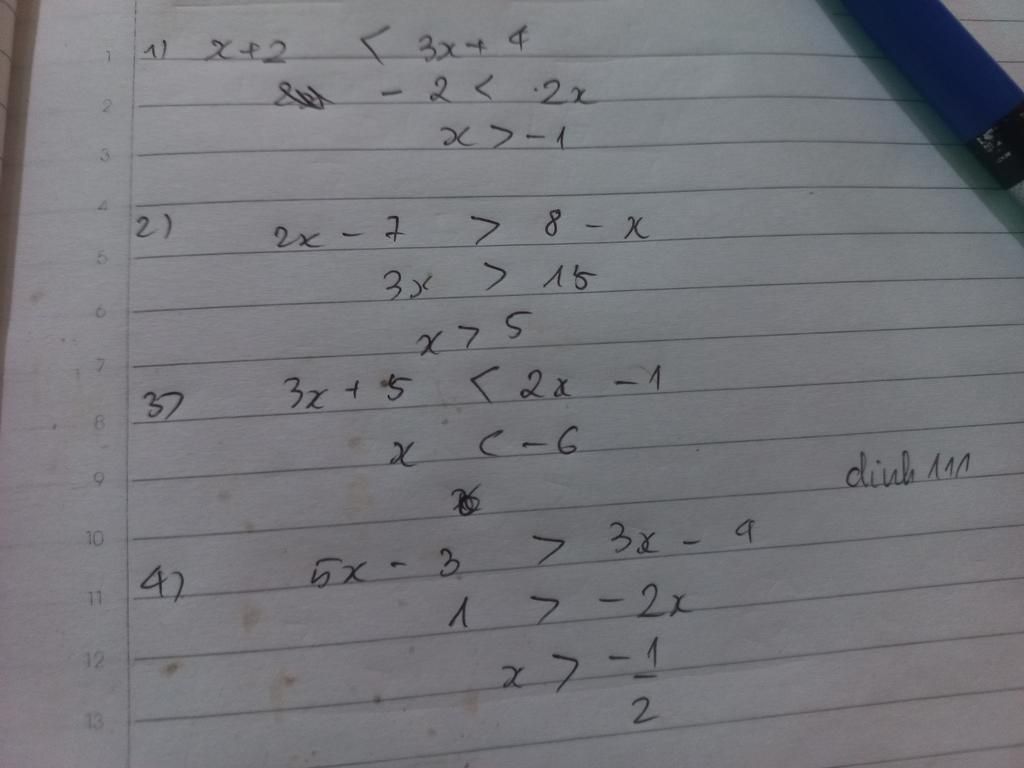 1) x+2 < 3x+4
- 2 < 2x
x > -1
2) 2x - 7 > 8 - x
3x > 15
x > 5
3) 3x + 5 < 2x - 1
x < -6
dinh 111
4) 5x - 3 > 3x - 4
1 > -2x
x > -1/2
1
2
3
4
5
6
7
8
9
10
11
12
13